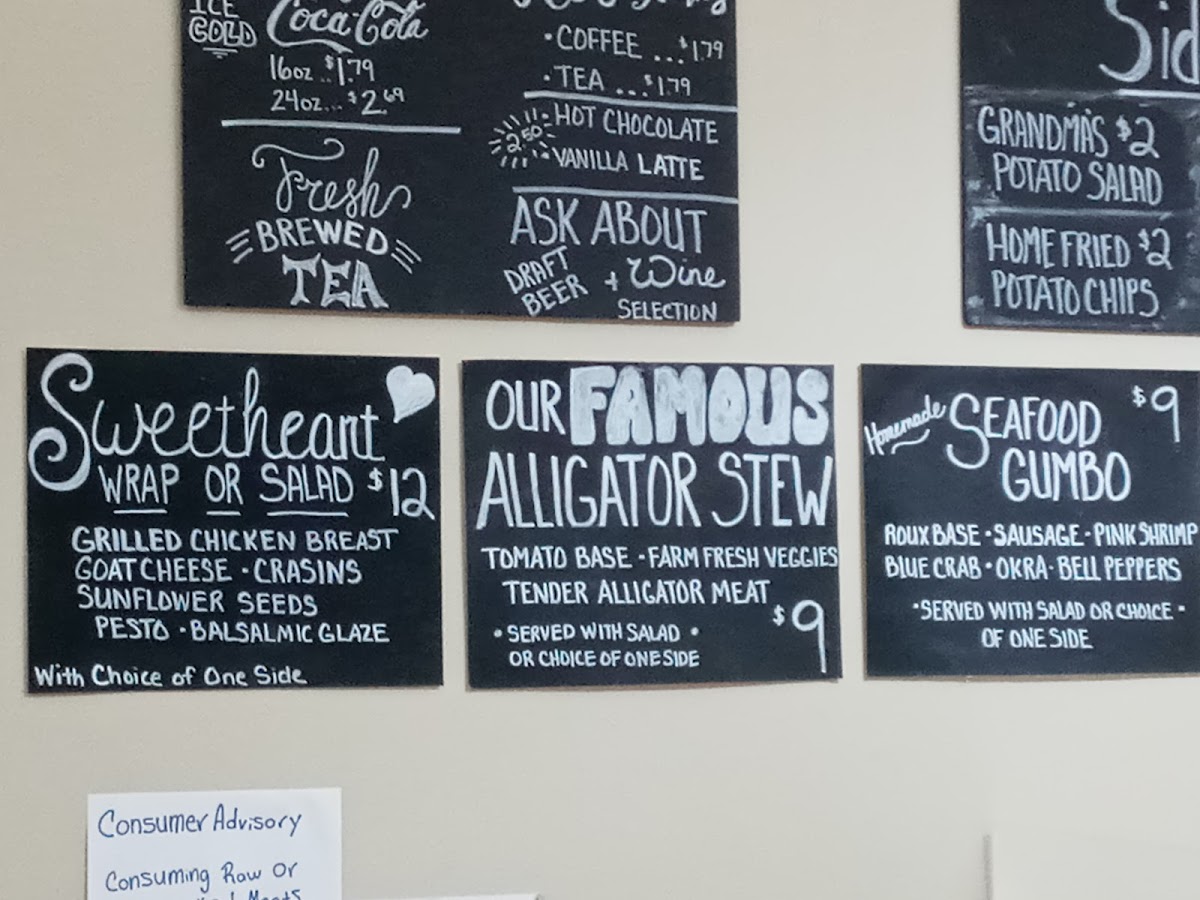 ICE
COLD
Coca-Cola
16oz..$1.79
24oz...$2.69
Fresh
BREWED
TEA
• COFFEE ...$1.79
• TEA ...$1.79
2.50
• HOT CHOCOLATE
• VANILLA LATTE
ASK ABOUT
DRAFT
BEER
+ Wine
SELECTION
GRANDMA'S $2
POTATO SALAD
HOME FRIED $2
POTATO CHIPS
Sweetheart
WRAP OR SALAD $12
GRILLED CHICKEN BREAST
GOAT CHEESE • CRASINS
SUNFLOWER SEEDS
PESTO • BALSALMIC GLAZE
With Choice of One Side
OUR FAMOUS
ALLIGATOR STEW
TOMATO BASE • FARM FRESH VEGGIES
TENDER ALLIGATOR MEAT
$9
• SERVED WITH SALAD •
OR CHOICE OF ONE SIDE
Homemade SEAFOOD $9
GUMBO
ROUX BASE • SAUSAGE • PINK SHRIMP
BLUE CRAB • OKRA • BELL PEPPERS
• SERVED WITH SALAD OR CHOICE •
OF ONE SIDE
Consumer Advisory
Consuming Raw Or
Meats